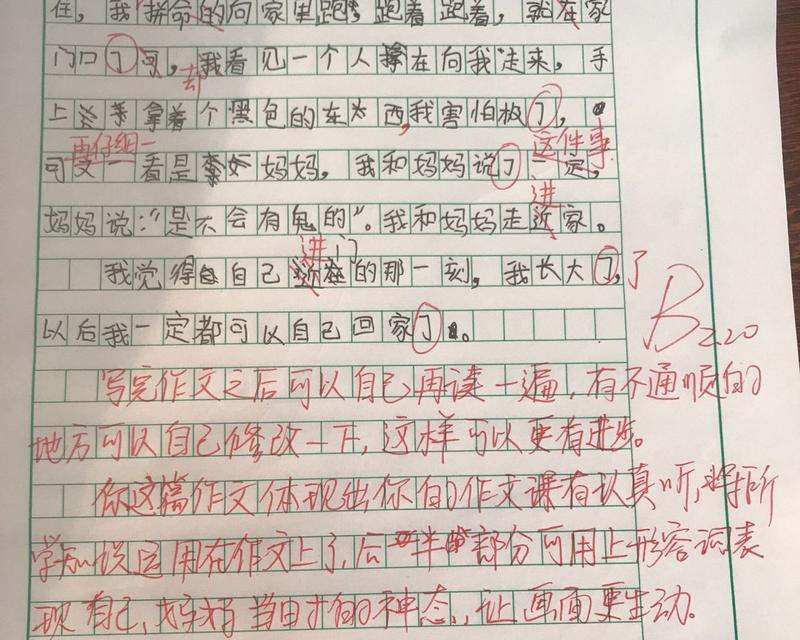 住，我拼命的向家里跑，跑着跑着，就在家
门口了可，我看见一个人拿在向我走来，手
却
上拿着个黑色的东西，我害怕极了，
再仔细一
这件事
可又一看是妈妈，我和妈妈说了定，
进
妈妈说："是不会有鬼的"。我和妈妈走近家。
进门
我觉得自己的那一刻，我长大了，了
以后我一定都可以自己回家了。
B
2.20
写完作文之后可以自己再读一遍，有不通顺的
地方可以自己修改一下，这样可以更有进步。
你这篇作文体现出你的作文课有认真听，将所
学知识运用在作文上了，后半部分可用上形容词表
现自己、妈妈当时的神态，让画面更生动。